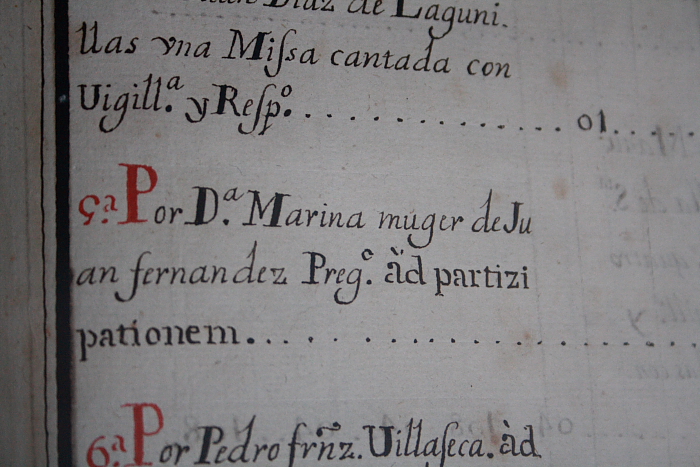 Diaz de Laguni.
llas vna Miſsa cantada con
Uigill.ª y Reſp.º ............. 01....
5.ª Por D.ª Marina muger de Ju
an fernandez Preg.º àd partizi
pationem..................
6.ª Por Pedro frñz. Uillaſeca. àd